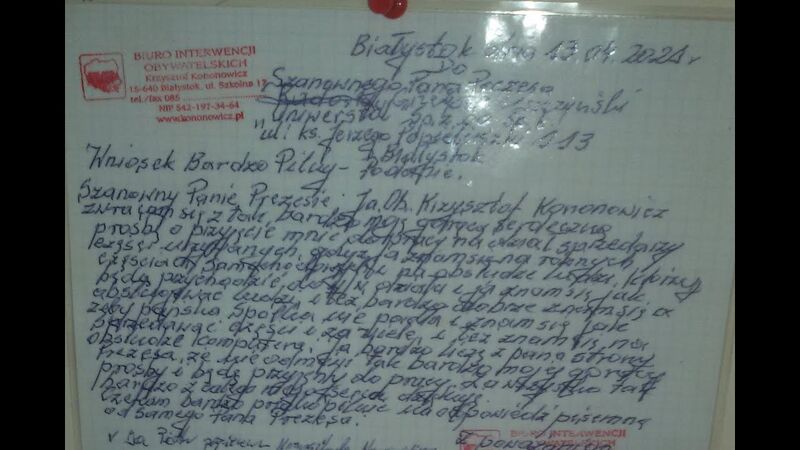 Białystok dnia 13 04 2021 r
BIURO INTERWENCJI
OBYWATELSKICH
Krzysztof Kononowicz
15-640 Białystok, ul. Szkolna 17
tel./fax 085
NIP 542-197-34-64
www.kononowicz.pl
Do
Szanownego Pana Prezesa
Uniwerstal Sp. z o.
ul. ks. Jerzego Popiełuszki 13
Białystok
Wniosek Bardzo Pilny - Podanie.
Szanowny Panie Prezesie. Ja Ob. Krzysztof Kononowicz
zwracam się z tak bardzo moją gorącą serdeczną
prośbą o przyjęcie mnie do pracy na dział sprzedarzy
części używanych, gdyż ja znam się na różnych
częściach samochodowych, i na obsłudze ludzi, którzy
będą przychodzić do działu i ja znam się jak
obsługiwać ludzi, i też bardzo dobrze znam się a
żeby pańska Spółka nie padła i znam się jak
sprzedawać części i za wiele, i też znam się na
obsłudze komputera. Ja bardzo liczę z pana strony
Prezesa, że nie odmówi tak bardzo mojej gorącej
prośby i będę przyjęty do pracy. Za wszystko tak
bardzo z całego serca dziękuję.
Czekam bardzo pilnie na odpowiedź pisemną
od Samego Pana Prezesa.
BIURO INTERWENCJI
Z poważaniem